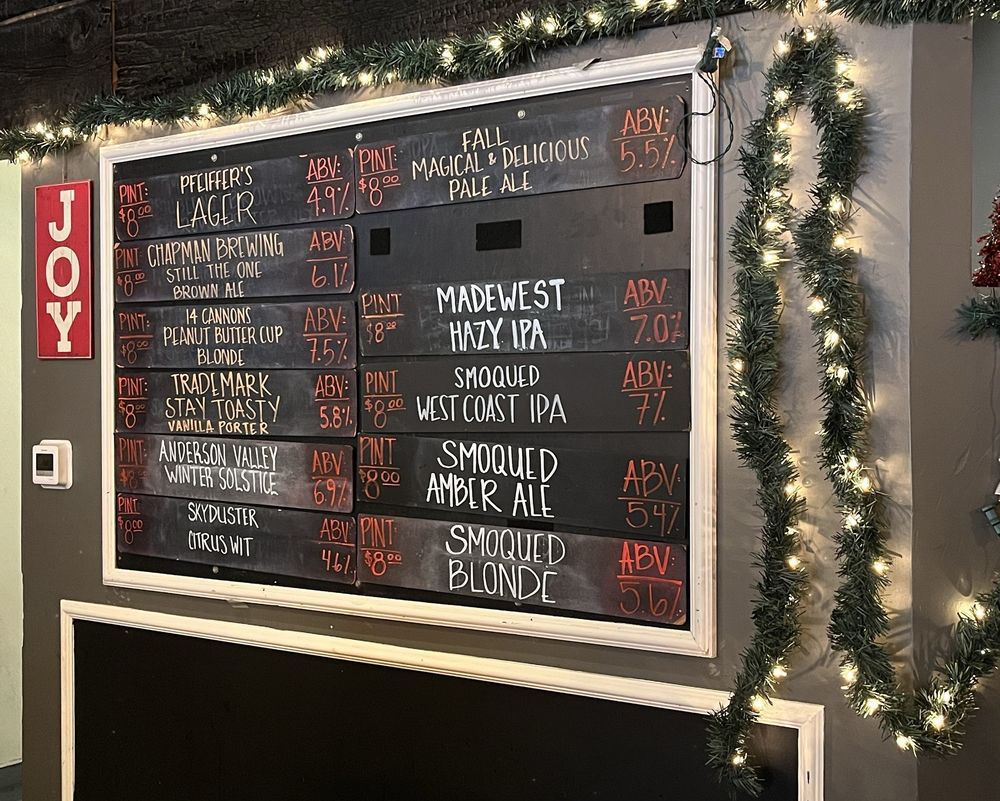 JOY
PINT:
$8.00
PFEIFFER'S
LAGER
ABV:
4.9%
PINT:
$8.00
CHAPMAN BREWING
STILL THE ONE
BROWN ALE
ABV:
6.1%
PINT:
$8.00
14 CANNONS
PEANUT BUTTER CUP
BLONDE
ABV:
7.5%
PINT:
$8.00
TRADEMARK
STAY TOASTY
VANILLA PORTER
ABV:
5.8%
PINT:
$8.00
ANDERSON VALLEY
WINTER SOLSTICE
ABV:
6.9%
PINT:
$8.00
SKYDUSTER
CITRUS WIT
ABV:
4.6%
PINT:
$8.00
FALL
MAGICAL & DELICIOUS
PALE ALE
ABV:
5.5%
PINT
$8.00
MADEWEST
HAZY IPA
ABV:
7.0%
PINT
$8.00
SMOQUED
WEST COAST IPA
ABV:
7%
PINT:
$8.00
SMOQUED
AMBER ALE
ABV:
5.4%
PINT:
$8.00
SMOQUED
BLONDE
ABV:
5.6%